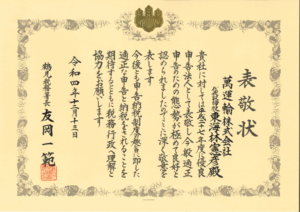 表敬状
萬運輸株式会社
代表取締役 東海林憲彦殿
貴社に対しては平成二十七年度に優良
申告法人として表敬し今般適正
申告のための能勢が極めて良好と
認められましたのでここに深く敬意を
表します
今後とも申告納税制度の趣旨に即した
適正な申告と納税をされることを
期待するとともに税務行政へ理解と
協力をお願いします
令和四年十二月十三日
鶴見税務署長
友岡一範